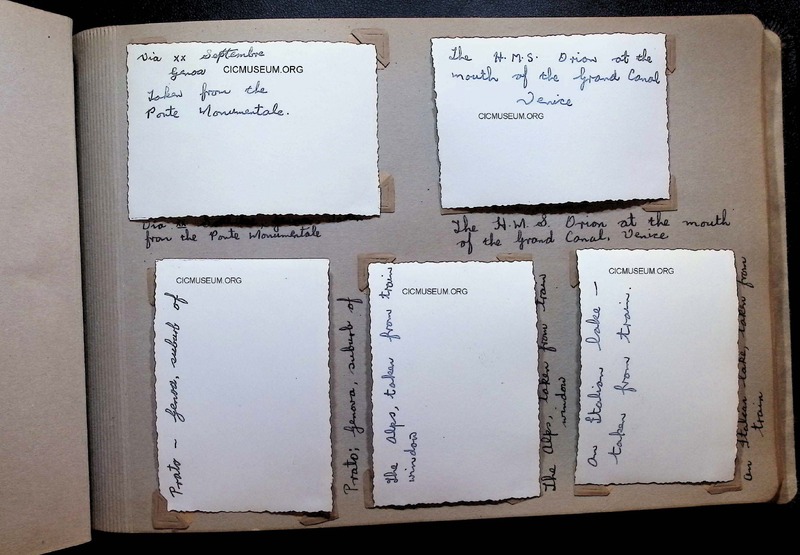 Via xx Septembre
Genoa
CICMUSEUM.ORG
Taken from the
Ponte Monumentale.
The H.M.S. Orion at the
mouth of the Grand Canal
Venice
CICMUSEUM.ORG
Via
from the Ponte Monumentale
The H.M.S. Orion at the mouth
of the Grand Canal, Venice
CICMUSEUM.ORG
Prato – Genoa, suburb of
Prato; Genova, suburb of
CICMUSEUM.ORG
The Alps, taken from train
window
The Alps, taken from train
window
CICMUSEUM.ORG
An Italian lake –
taken from train.
An Italian lake, taken from
train